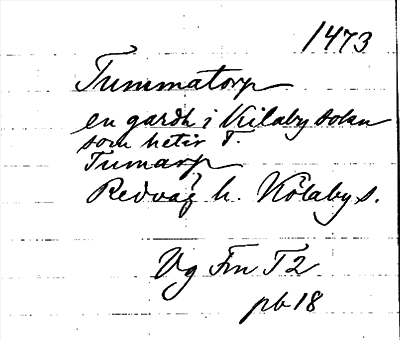 1473
Tummatorp
en gardh i Kilaby sokn
som hetir T.
Tumarp
Redväg h. Kölaby s.
Vg Fm T 2
pb 18